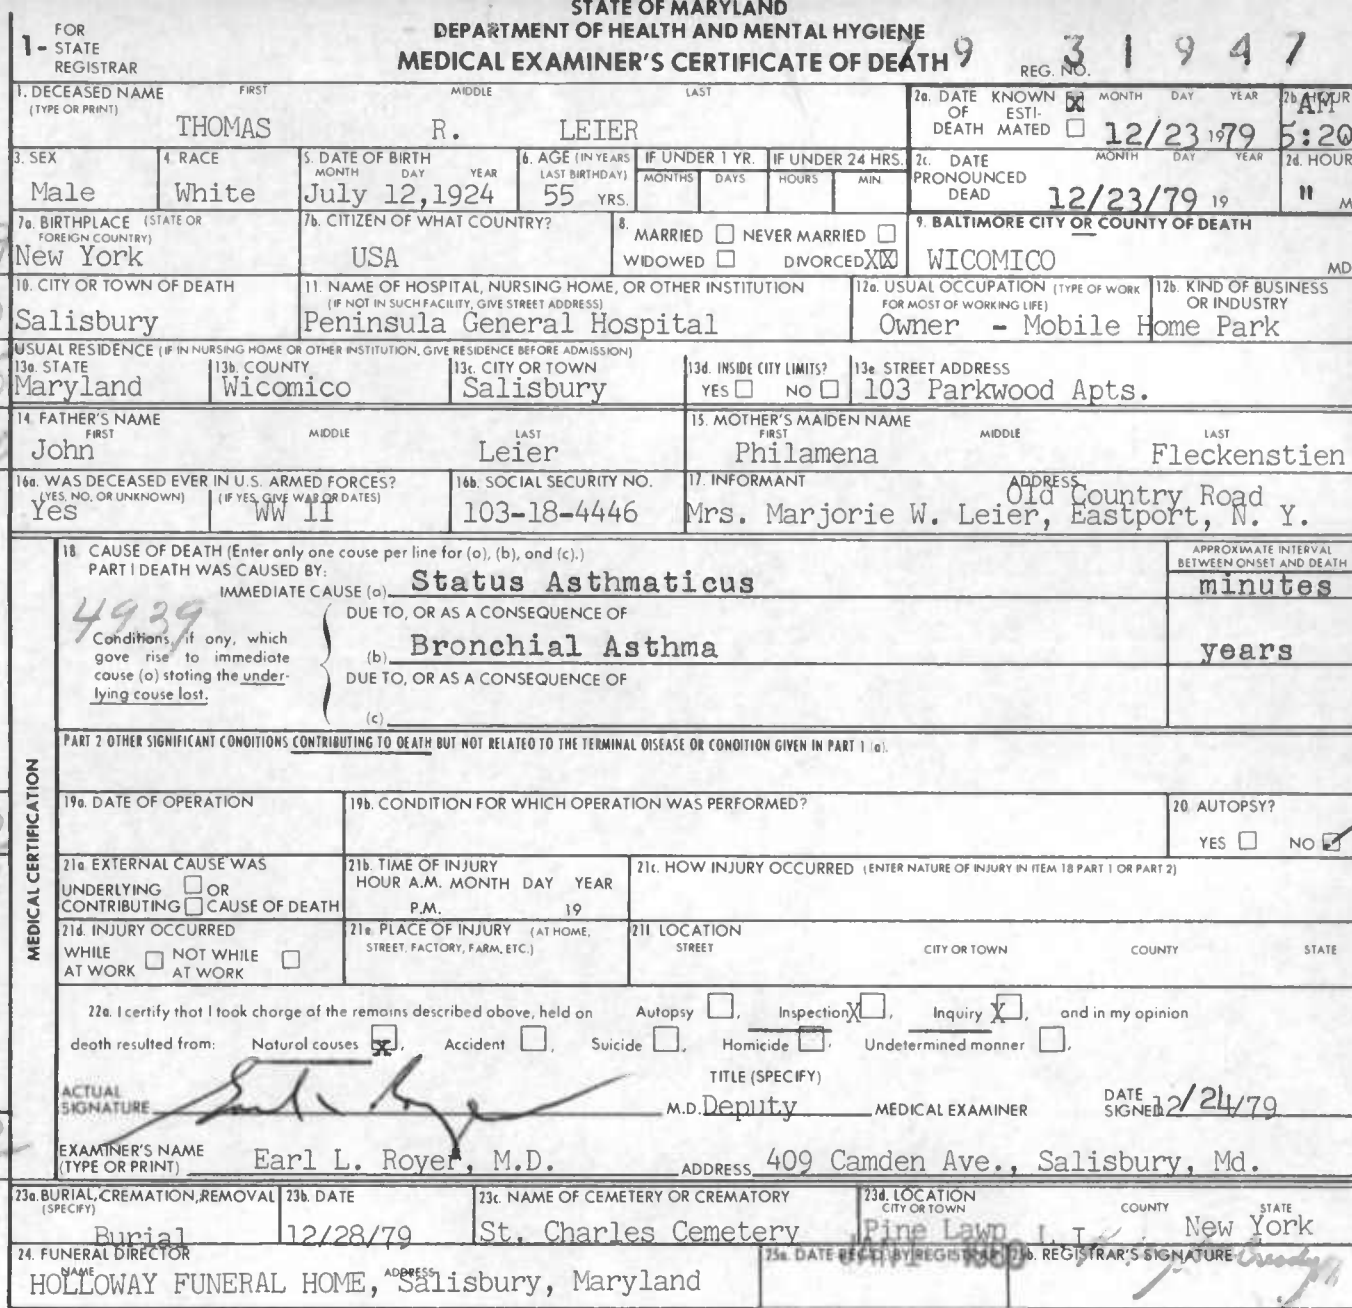 STATE OF MARYLAND
DEPARTMENT OF HEALTH AND MENTAL HYGIENE
MEDICAL EXAMINER'S CERTIFICATE OF DEATH
1 - FOR STATE REGISTRAR
79 REG. NO. 31947
1. DECEASED NAME (TYPE OR PRINT) FIRST MIDDLE LAST
THOMAS R. LEIER
2a. DATE OF DEATH KNOWN X ESTIMATED MONTH DAY YEAR
12/23 19 79
2b. HOUR
AM
5:20
3. SEX
Male
4. RACE
White
5. DATE OF BIRTH MONTH DAY YEAR
July 12,1924
6. AGE (IN YEARS LAST BIRTHDAY)
55 YRS.
IF UNDER 1 YR. MONTHS DAYS
IF UNDER 24 HRS. HOURS MIN.
2c. DATE PRONOUNCED DEAD MONTH DAY YEAR
12/23/79 19
2d. HOUR
" M
7a. BIRTHPLACE (STATE OR FOREIGN COUNTRY)
New York
7b. CITIZEN OF WHAT COUNTRY?
USA
8. MARRIED NEVER MARRIED
WIDOWED DIVORCED XX
9. BALTIMORE CITY OR COUNTY OF DEATH
WICOMICO MD
10. CITY OR TOWN OF DEATH
Salisbury
11. NAME OF HOSPITAL, NURSING HOME, OR OTHER INSTITUTION
(IF NOT IN SUCH FACILITY, GIVE STREET ADDRESS)
Peninsula General Hospital
12a. USUAL OCCUPATION (TYPE OF WORK FOR MOST OF WORKING LIFE)
12b. KIND OF BUSINESS OR INDUSTRY
Owner - Mobile Home Park
USUAL RESIDENCE (IF IN NURSING HOME OR OTHER INSTITUTION, GIVE RESIDENCE BEFORE ADMISSION)
13a. STATE
Maryland
13b. COUNTY
Wicomico
13c. CITY OR TOWN
Salisbury
13d. INSIDE CITY LIMITS?
YES NO
13e STREET ADDRESS
103 Parkwood Apts.
14. FATHER'S NAME FIRST MIDDLE LAST
John Leier
15. MOTHER'S MAIDEN NAME FIRST MIDDLE LAST
Philamena Fleckenstien
16a. WAS DECEASED EVER IN U.S. ARMED FORCES?
(YES, NO, OR UNKNOWN) (IF YES, GIVE WAR OR DATES)
Yes WW II
16b. SOCIAL SECURITY NO.
103-18-4446
17. INFORMANT ADDRESS
Old Country Road
Mrs. Marjorie W. Leier, Eastport, N. Y.
MEDICAL CERTIFICATION
18 CAUSE OF DEATH (Enter only one cause per line for (a), (b), and (c).)
PART I DEATH WAS CAUSED BY:
APPROXIMATE INTERVAL BETWEEN ONSET AND DEATH
IMMEDIATE CAUSE (a) Status Asthmaticus minutes
4939
Conditions, if any, which gave rise to immediate cause (a) stating the underlying cause last.
DUE TO, OR AS A CONSEQUENCE OF
(b) Bronchial Asthma years
DUE TO, OR AS A CONSEQUENCE OF
(c)
PART 2 OTHER SIGNIFICANT CONDITIONS CONTRIBUTING TO DEATH BUT NOT RELATED TO THE TERMINAL DISEASE OR CONDITION GIVEN IN PART 1 (a).
19a. DATE OF OPERATION
19b. CONDITION FOR WHICH OPERATION WAS PERFORMED?
20 AUTOPSY?
YES NO
21a EXTERNAL CAUSE WAS
UNDERLYING OR
CONTRIBUTING CAUSE OF DEATH
21b. TIME OF INJURY
HOUR A.M. MONTH DAY YEAR
P.M. 19
21c. HOW INJURY OCCURRED (ENTER NATURE OF INJURY IN ITEM 18 PART 1 OR PART 2)
21d. INJURY OCCURRED
WHILE AT WORK NOT WHILE AT WORK
21e. PLACE OF INJURY (AT HOME, STREET, FACTORY, FARM, ETC.)
21f. LOCATION
STREET CITY OR TOWN COUNTY STATE
22a. I certify that I took charge of the remains described above, held on Autopsy , Inspection X , Inquiry X , and in my opinion
death resulted from: Natural causes X , Accident , Suicide , Homicide , Undetermined manner .
ACTUAL SIGNATURE
TITLE (SPECIFY)
M.D. Deputy MEDICAL EXAMINER
DATE SIGNED 12/24/79
EXAMINER'S NAME (TYPE OR PRINT) Earl L. Royer, M.D. ADDRESS 409 Camden Ave., Salisbury, Md.
23a. BURIAL, CREMATION, REMOVAL (SPECIFY)
Burial
23b. DATE
12/28/79
23c. NAME OF CEMETERY OR CREMATORY
St. Charles Cemetery
23d. LOCATION CITY OR TOWN COUNTY STATE
Pine Lawn L.I. New York
24. FUNERAL DIRECTOR
NAME ADDRESS
HOLLOWAY FUNERAL HOME, Salisbury, Maryland
25a. DATE REC'D BY REGISTRAR
25b. REGISTRAR'S SIGNATURE